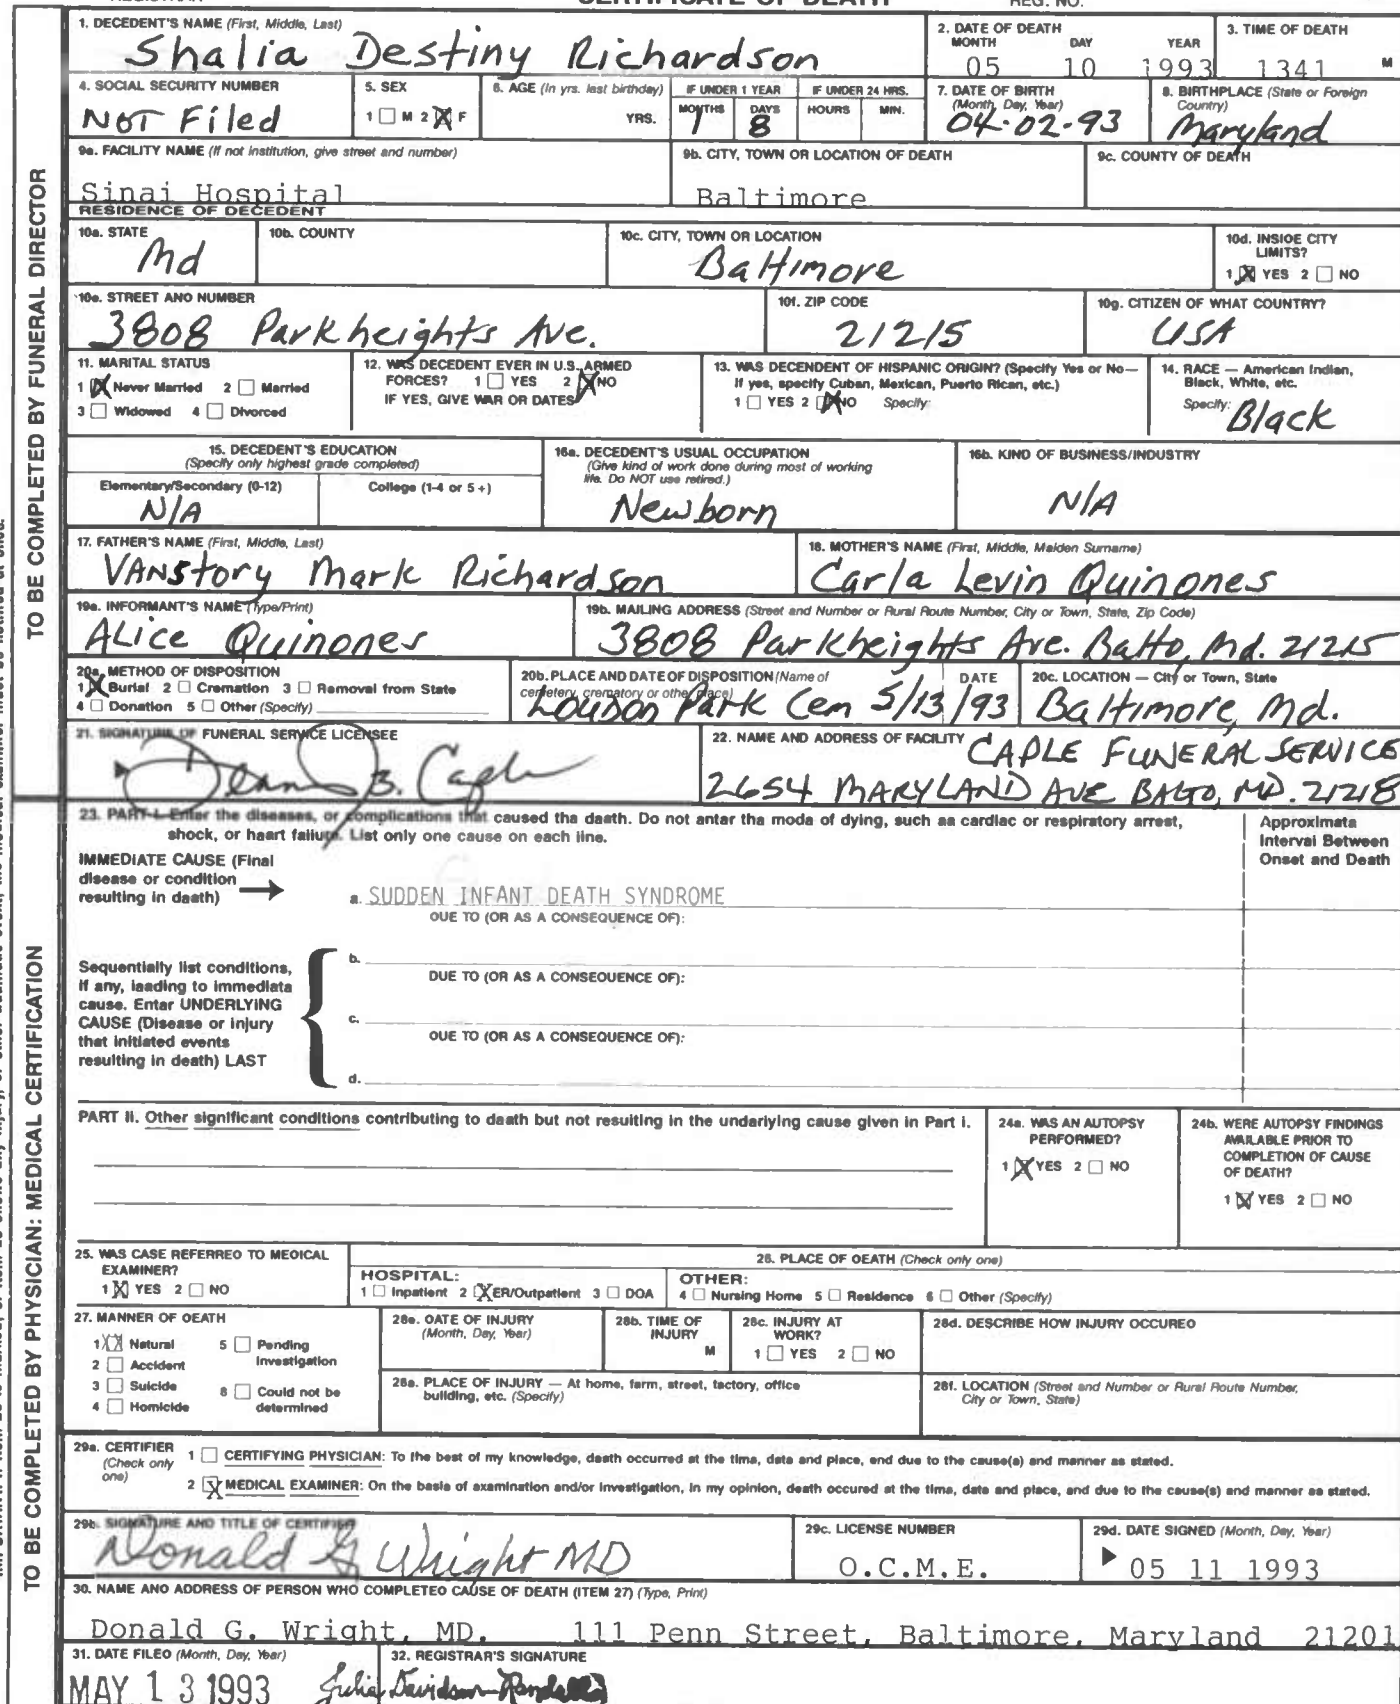 CERTIFICATE OF DEATH REG. NO.
1. DECEDENT'S NAME (First, Middle, Last) Shalia Destiny Richardson
2. DATE OF DEATH MONTH DAY YEAR 05 10 1993
3. TIME OF DEATH 1341 M
4. SOCIAL SECURITY NUMBER NOT Filed
5. SEX 1 ☐ M 2 ☒ F
6. AGE (In yrs. last birthday) YRS.
IF UNDER 1 YEAR MONTHS 1 DAYS 8
IF UNDER 24 HRS. HOURS MIN.
7. DATE OF BIRTH (Month, Day, Year) 04-02-93
8. BIRTHPLACE (State or Foreign Country) Maryland
9a. FACILITY NAME (If not institution, give street and number) Sinai Hospital
9b. CITY, TOWN OR LOCATION OF DEATH Baltimore
9c. COUNTY OF DEATH
RESIDENCE OF DECEDENT
10a. STATE Md
10b. COUNTY
10c. CITY, TOWN OR LOCATION Baltimore
10d. INSIDE CITY LIMITS? 1 ☒ YES 2 ☐ NO
10e. STREET AND NUMBER 3808 Parkheights Ave.
10f. ZIP CODE 21215
10g. CITIZEN OF WHAT COUNTRY? USA
11. MARITAL STATUS
1 ☒ Never Married 2 ☐ Married
3 ☐ Widowed 4 ☐ Divorced
12. WAS DECEDENT EVER IN U.S. ARMED FORCES? 1 ☐ YES 2 ☒ NO
IF YES, GIVE WAR OR DATES
13. WAS DECENDENT OF HISPANIC ORIGIN? (Specify Yes or No—
If yes, specify Cuban, Mexican, Puerto Rican, etc.)
1 ☐ YES 2 ☒ NO Specify:
14. RACE — American Indian, Black, White, etc.
Specify: Black
15. DECEDENT'S EDUCATION (Specify only highest grade completed)
Elementary/Secondary (0-12) N/A
College (1-4 or 5+)
16a. DECEDENT'S USUAL OCCUPATION (Give kind of work done during most of working life. Do NOT use retired.) Newborn
16b. KIND OF BUSINESS/INDUSTRY N/A
17. FATHER'S NAME (First, Middle, Last) VANStory Mark Richardson
18. MOTHER'S NAME (First, Middle, Maiden Surname) Carla Levin Quinones
19a. INFORMANT'S NAME (Type/Print) ALice Quinones
19b. MAILING ADDRESS (Street and Number or Rural Route Number, City or Town, State, Zip Code) 3808 Parkheights Ave. Balto, Md. 21215
20a. METHOD OF DISPOSITION
1 ☒ Burial 2 ☐ Cremation 3 ☐ Removal from State
4 ☐ Donation 5 ☐ Other (Specify)
20b. PLACE AND DATE OF DISPOSITION (Name of cemetery, crematory or other place) DATE Loudon Park Cem 5/13/93
20c. LOCATION — City or Town, State Baltimore, Md.
21. SIGNATURE OF FUNERAL SERVICE LICENSEE B. Caple
22. NAME AND ADDRESS OF FACILITY CAPLE FUNERAL SERVICE
2654 MARYLAND AVE BALTO, MD. 21218
TO BE COMPLETED BY FUNERAL DIRECTOR
23. PART I. Enter the diseases, or complications that caused the death. Do not enter the mode of dying, such as cardiac or respiratory arrest,
shock, or heart failure. List only one cause on each line.
Approximate Interval Between Onset and Death
IMMEDIATE CAUSE (Final disease or condition resulting in death)
a. SUDDEN INFANT DEATH SYNDROME
DUE TO (OR AS A CONSEQUENCE OF):
Sequentially list conditions, if any, leading to immediate cause. Enter UNDERLYING CAUSE (Disease or injury that initiated events resulting in death) LAST
b.
DUE TO (OR AS A CONSEQUENCE OF):
c.
DUE TO (OR AS A CONSEQUENCE OF):
d.
PART II. Other significant conditions contributing to death but not resulting in the underlying cause given in Part I.
24a. WAS AN AUTOPSY PERFORMED?
1 ☒ YES 2 ☐ NO
24b. WERE AUTOPSY FINDINGS AVAILABLE PRIOR TO COMPLETION OF CAUSE OF DEATH?
1 ☒ YES 2 ☐ NO
25. WAS CASE REFERRED TO MEDICAL EXAMINER?
1 ☒ YES 2 ☐ NO
26. PLACE OF DEATH (Check only one)
HOSPITAL: 1 ☐ Inpatient 2 ☒ ER/Outpatient 3 ☐ DOA
OTHER: 4 ☐ Nursing Home 5 ☐ Residence 6 ☐ Other (Specify)
27. MANNER OF DEATH
1 ☒ Natural 5 ☐ Pending Investigation
2 ☐ Accident
3 ☐ Suicide 8 ☐ Could not be determined
4 ☐ Homicide
28a. DATE OF INJURY (Month, Day, Year)
28b. TIME OF INJURY M
28c. INJURY AT WORK? 1 ☐ YES 2 ☐ NO
28d. DESCRIBE HOW INJURY OCCURED
28e. PLACE OF INJURY — At home, farm, street, factory, office building, etc. (Specify)
28f. LOCATION (Street and Number or Rural Route Number, City or Town, State)
29a. CERTIFIER (Check only one)
1 ☐ CERTIFYING PHYSICIAN: To the best of my knowledge, death occurred at the time, date and place, and due to the cause(s) and manner as stated.
2 ☒ MEDICAL EXAMINER: On the basis of examination and/or investigation, in my opinion, death occured at the time, date and place, and due to the cause(s) and manner as stated.
29b. SIGNATURE AND TITLE OF CERTIFIER Donald G Wright MD
29c. LICENSE NUMBER O.C.M.E.
29d. DATE SIGNED (Month, Day, Year) 05 11 1993
30. NAME AND ADDRESS OF PERSON WHO COMPLETED CAUSE OF DEATH (ITEM 27) (Type, Print)
Donald G. Wright, MD. 111 Penn Street, Baltimore, Maryland 21201
31. DATE FILED (Month, Day, Year) MAY 13 1993
32. REGISTRAR'S SIGNATURE Julia Davidson-Randall
TO BE COMPLETED BY PHYSICIAN: MEDICAL CERTIFICATION